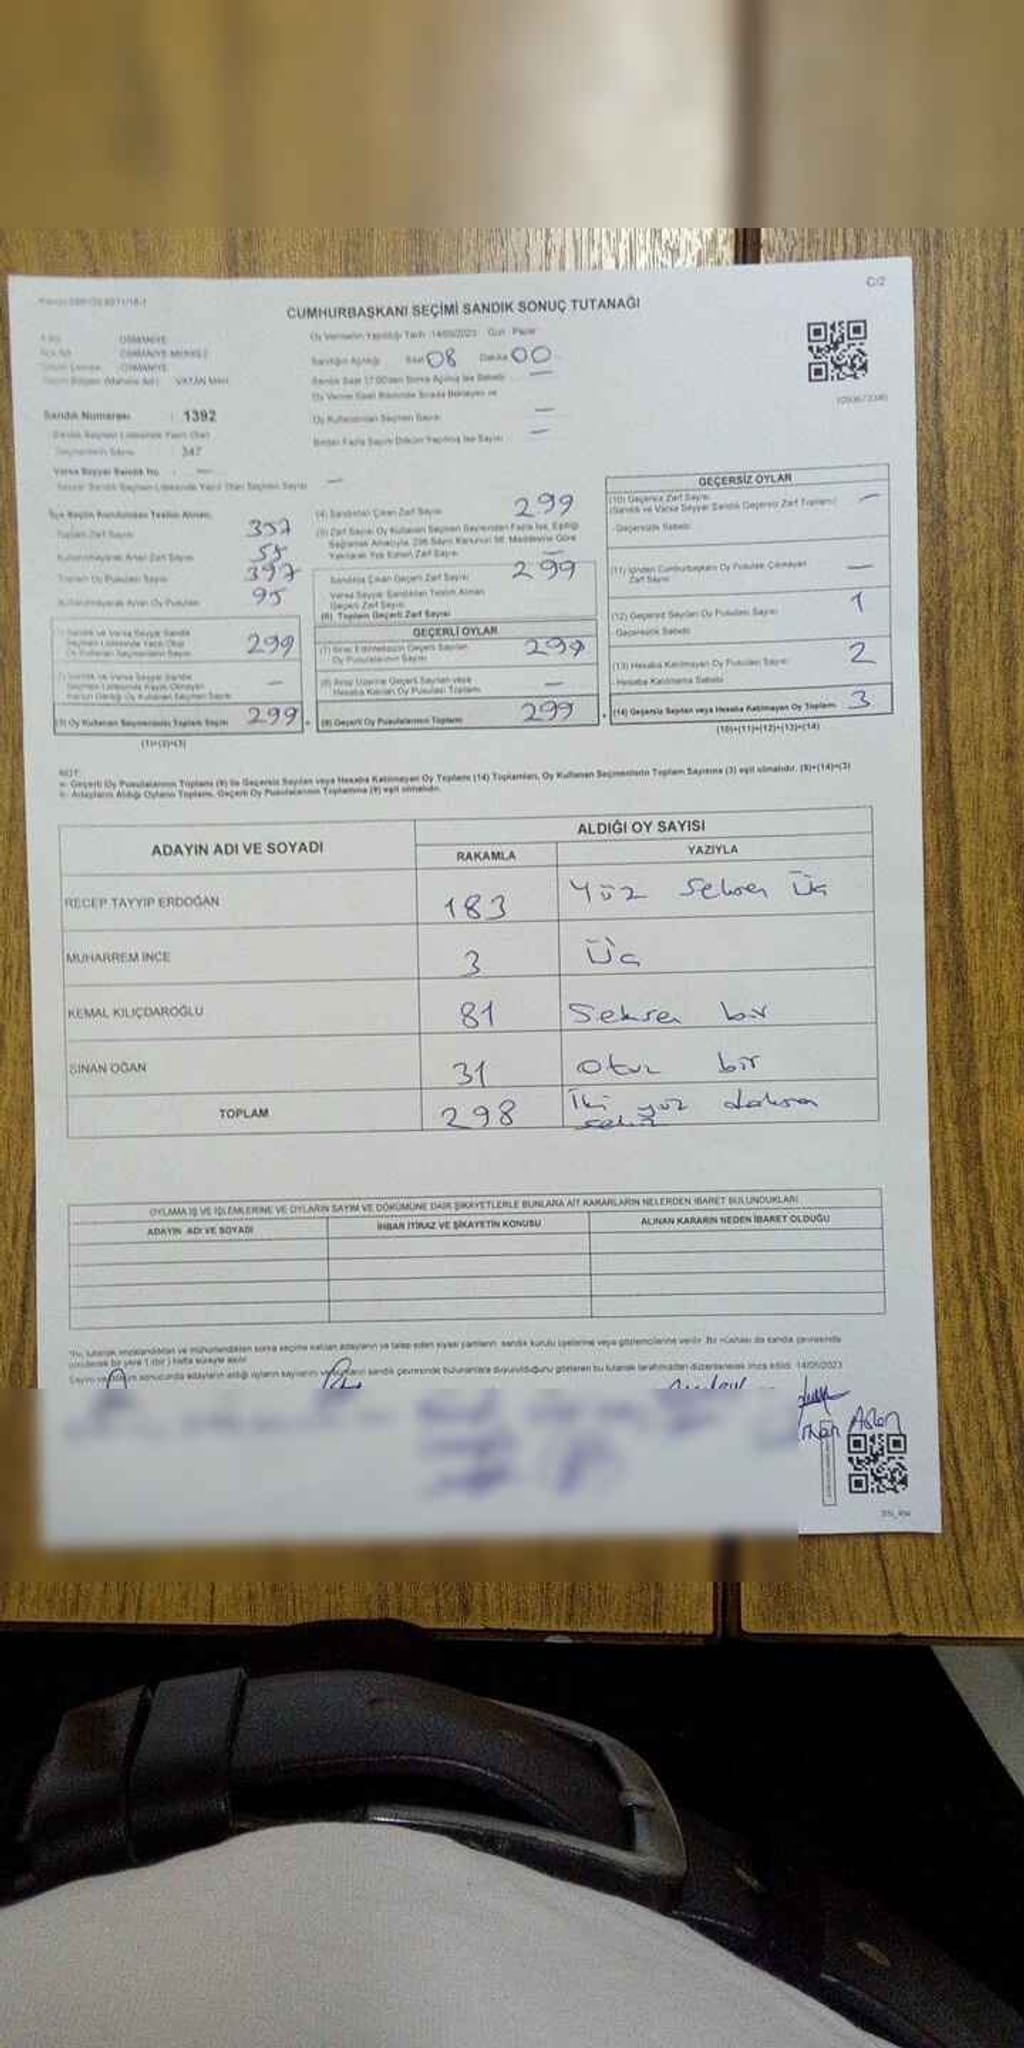 C/2
CUMHURBAŞKANI SEÇİMİ SANDIK SONUÇ TUTANAĞI
İl Adı : OSMANİYE
İlçe Adı : OSMANİYE MERKEZ
OSMANİYE
(Mahalle Adı) : VATAN MAH.
Oy Vermenin Yapıldığı Tarih :14/05/2023 Gün : Pazar
Sandığın Açıldığı Saat 08 Dakika 00
Sandık Saat 17:00'den Sonra Açılmış İse Sebebi: —
Oy Verme Saati Bitiminde Sırada Bekleyen ve
Oy Kullanan Seçmen Sayısı —
Birden Fazla Sayım Döküm Yapılmış İse Sayısı —
Sandık Numarası : 1392
Sandık Seçmen Listesinde Yazılı Olan
Seçmenlerin Sayısı : 347
Varsa Seyyar Sandık No : —
Seyyar Sandık Seçmen Listesinde Yazılı Olan Seçmen Sayısı —
İlçe Seçim Kurulundan Teslim Alınan;
Toplam Zarf Sayısı
Kullanılmayarak Artan Zarf Sayısı
Toplam Oy Pusulası Sayısı
Kullanılmayarak Artan Oy Pusulası 95
(1) Sandık ve Varsa Seyyar Sandık
Seçmen Listesinde Yazılı Olup
Oy Kullanan Seçmenlerin Sayısı 299
(2) Sandık ve Varsa Seyyar Sandık
Seçmen Listesinde Kayıtlı Olmayan
Kanun Gereği Oy Kullanan Seçmen Sayısı —
(3) Oy Kullanan Seçmenlerin Toplam Sayısı 299
(1)+(2)=(3)
(4) Sandıktan Çıkan Zarf Sayısı 299
(5) Zarf Sayısı Oy Kullanan Seçmen Sayısından Fazla İse, Eşitliği
Sağlamak Amacıyla, 298 Sayılı Kanunun 98. Maddesine Göre
Yakılarak Yok Edilen Zarf Sayısı —
Sandıkta Çıkan Geçerli Zarf Sayısı 299
Varsa Seyyar Sandıktan Teslim Alınan
Geçerli Zarf Sayısı
(6) Toplam Geçerli Zarf Sayısı
GEÇERLİ OYLAR
(7) İtiraz Edilmeksizin Geçerli Sayılan
Oy Pusulalarının Sayısı 299
(8) İtiraz Üzerine Geçerli Sayılan veya
Hesaba Katılan Oy Pusulası Toplamı —
(9) Geçerli Oy Pusulalarının Toplamı 299
GEÇERSİZ OYLAR
(10) Geçersiz Zarf Sayısı
(Sandık ve Varsa Seyyar Sandık Geçersiz Zarf Toplamı) —
- Geçersizlik Sebebi:
(11) İçinden Cumhurbaşkanı Oy Pusulası Çıkmayan
Zarf Sayısı —
(12) Geçersiz Sayılan Oy Pusulası Sayısı 1
- Geçersizlik Sebebi:
(13) Hesaba Katılmayan Oy Pusulası Sayısı 2
- Hesaba Katılmama Sebebi:
(14) Geçersiz Sayılan veya Hesaba Katılmayan Oy Toplamı 3
(10)+(11)+(12)+(13)=(14)
NOT:
a- Geçerli Oy Pusulalarının Toplamı (9) ile Geçersiz Sayılan veya Hesaba Katılmayan Oy Toplamı (14) Toplamları, Oy Kullanan Seçmenlerin Toplam Sayısına (3) eşit olmalıdır. (9)+(14)=(3)
b- Adayların Aldığı Oyların Toplamı, Geçerli Oy Pusulalarının Toplamına (9) eşit olmalıdır.
ADAYIN ADI VE SOYADI
ALDIĞI OY SAYISI
RAKAMLA YAZIYLA
RECEP TAYYİP ERDOĞAN 183 Yüz Seksen Üç
MUHARREM İNCE 3 Üç
KEMAL KILIÇDAROĞLU 81 Seksen bir
SİNAN OĞAN 31 otuz bir
TOPLAM 298 İki yüz doksan
sekiz
OYLAMA İŞ VE İŞLEMLERİNE VE OYLARIN SAYIM VE DÖKÜMÜNE DAİR ŞİKAYETLERLE BUNLARA AİT KARARLARIN NELERDEN İBARET BULUNDUKLARI
ADAYIN ADI VE SOYADI
İHBAR İTİRAZ VE ŞİKAYETİN KONUSU
ALINAN KARARIN NEDEN İBARET OLDUĞU
*Bu tutanak imzalandıktan ve mühürlendikten sonra seçime katılan adayların ve talep eden siyasi partilerin sandık kurulu üyelerine veya gözlemcilerine verilir. Bir nüshası da sandık çevresinde
görülecek bir yere 1 (bir) hafta süreyle asılır.
sonucunda adayların aldığı oyların sayılarını sandık çevresinde bulunanlara duyurulduğunu gösteren bu tutanak tarafımızdan düzenlenerek imza edildi. 14/05/2023
Aslan